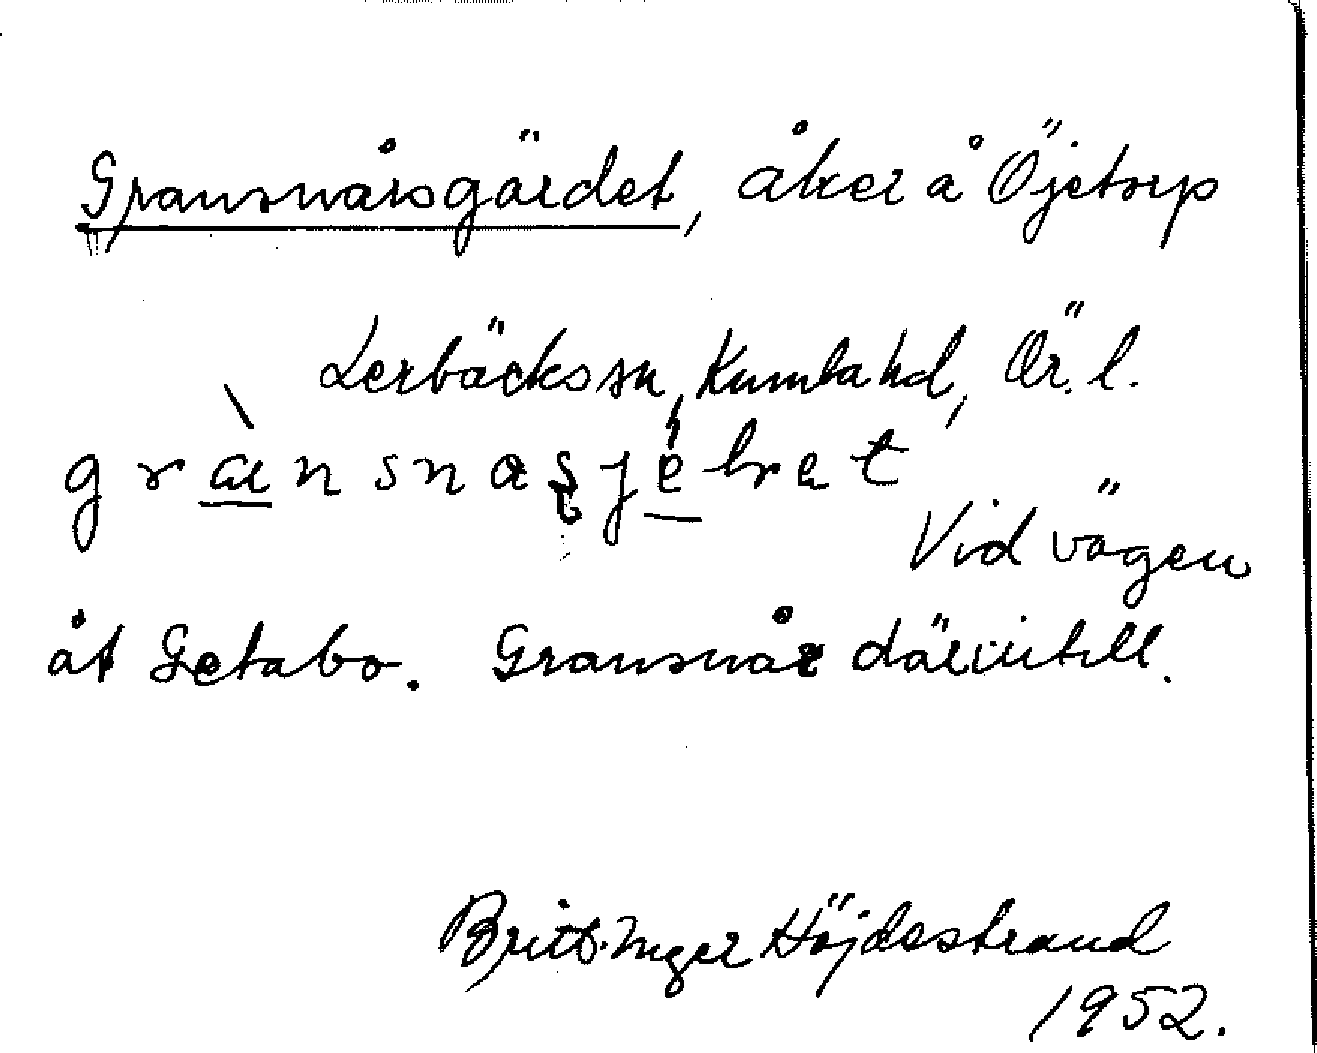 Gransnårsgärdet, åker å Öjetorp
Lerbäcks sn, Kumla hd, Ör. l.
grànsnaṣjèḷret
Vid vägen
åt Getabo. Gransnår därintill.
Britt-Inger Höjdestrand
1952.